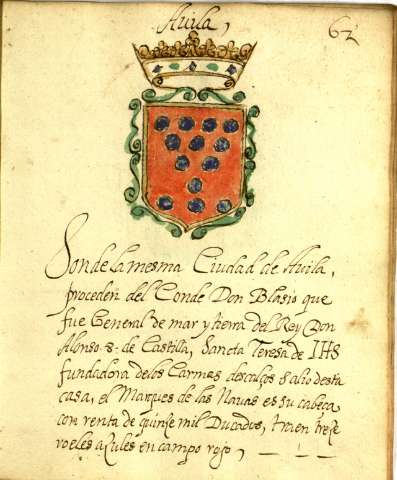 Auila,
62
Son de la mesma Ciudad de Auila,
proceden del Conde Don Blasio que
fue General de mar y tierra del Rey Don
Alonso 8. de Castilla, Sancta Teresa de IHS
fundadora delos Carmes descalços salio desta
casa, el Marques de las Nauas es su cabeça
con renta de quinse mil Ducados, traen trese
roeles açules en campo rojo,